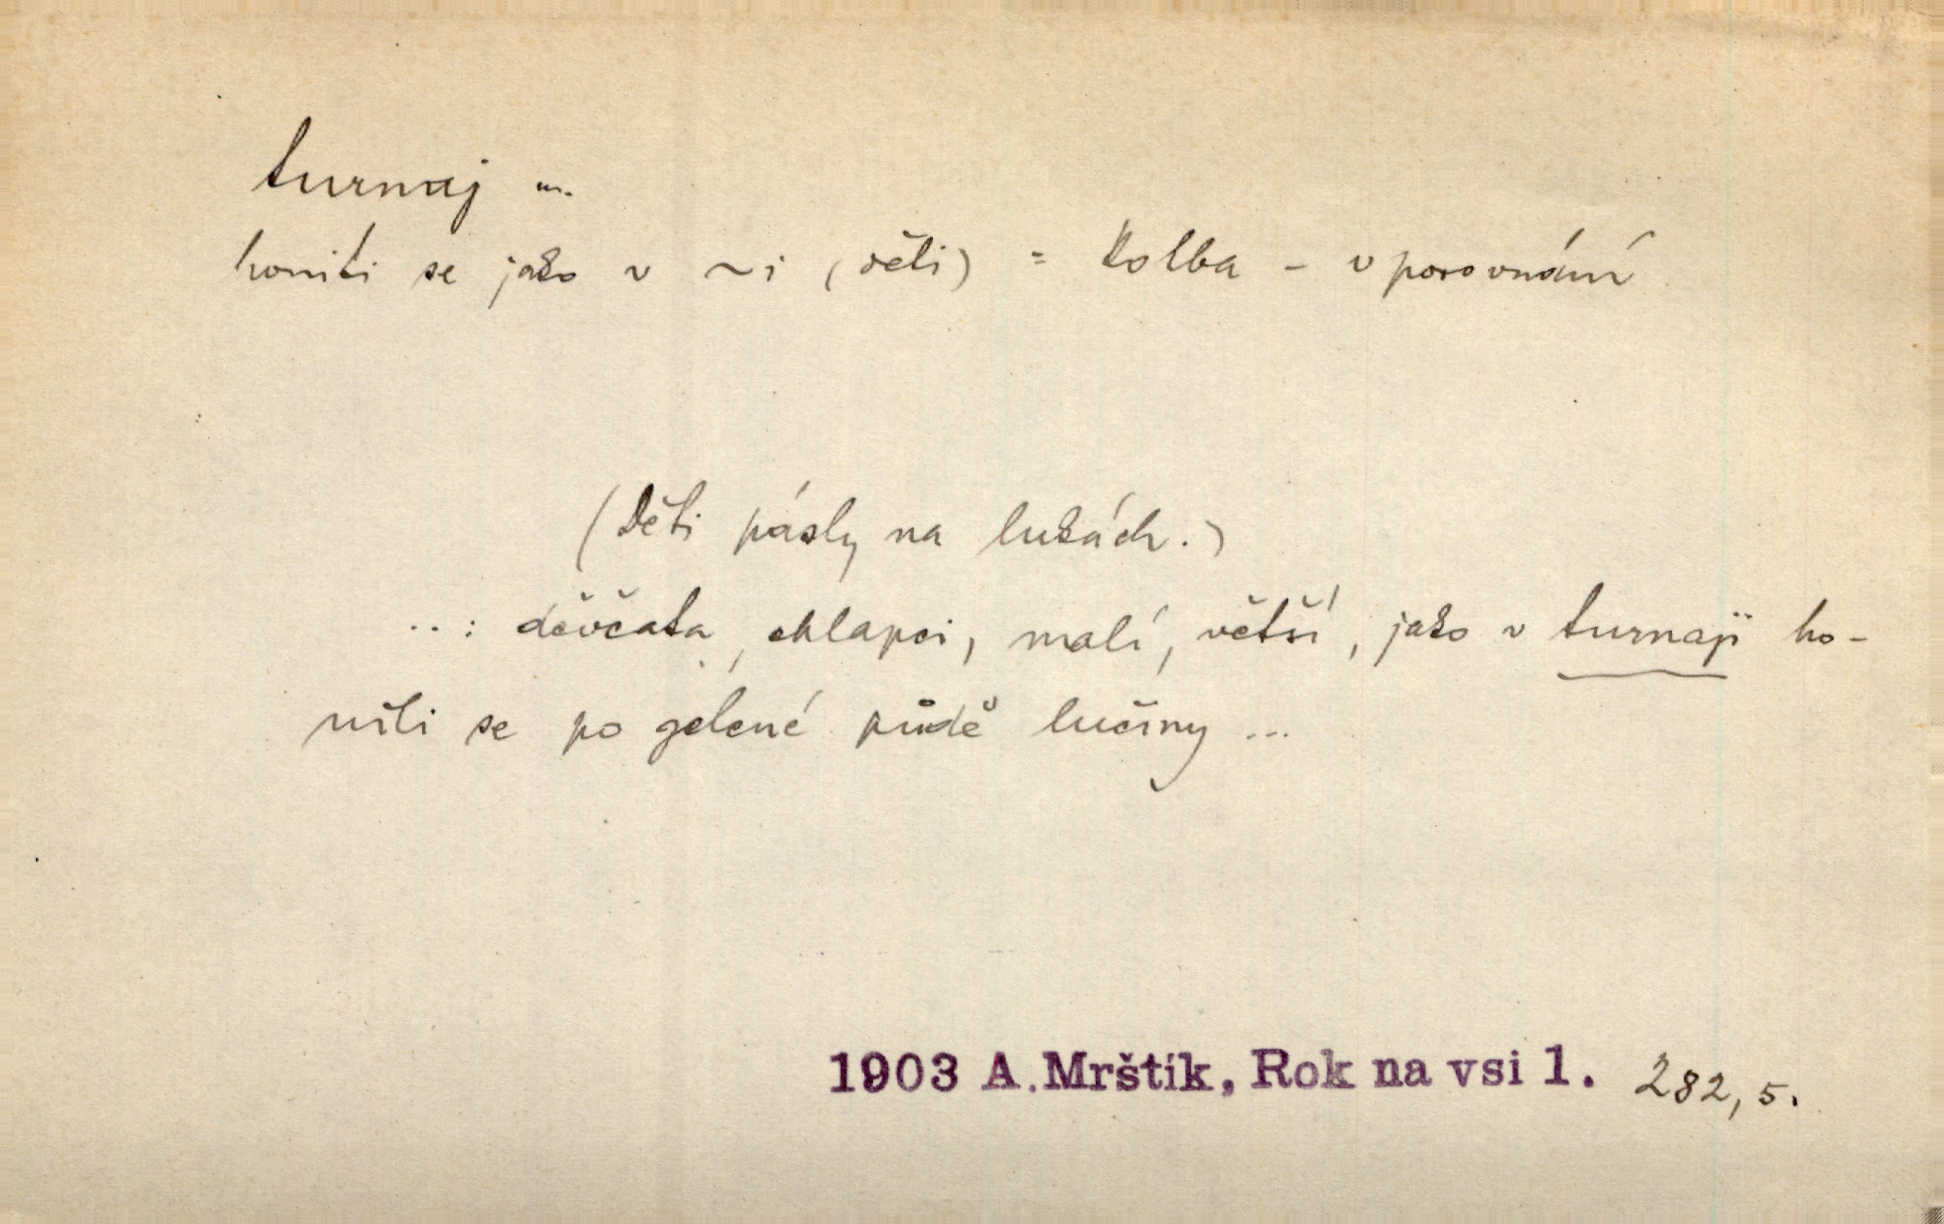 turnaj m.
honiti se jako v ~i (děti) = kolba - v porovnání
(Děti pásly na lukách.)
..: děvčata, chlapci, malí, větší, jako v turnaji ho-
nili se po zelené půdě lučiny ...
1903 A. Mrštík, Rok na vsi 1. 282, 5.